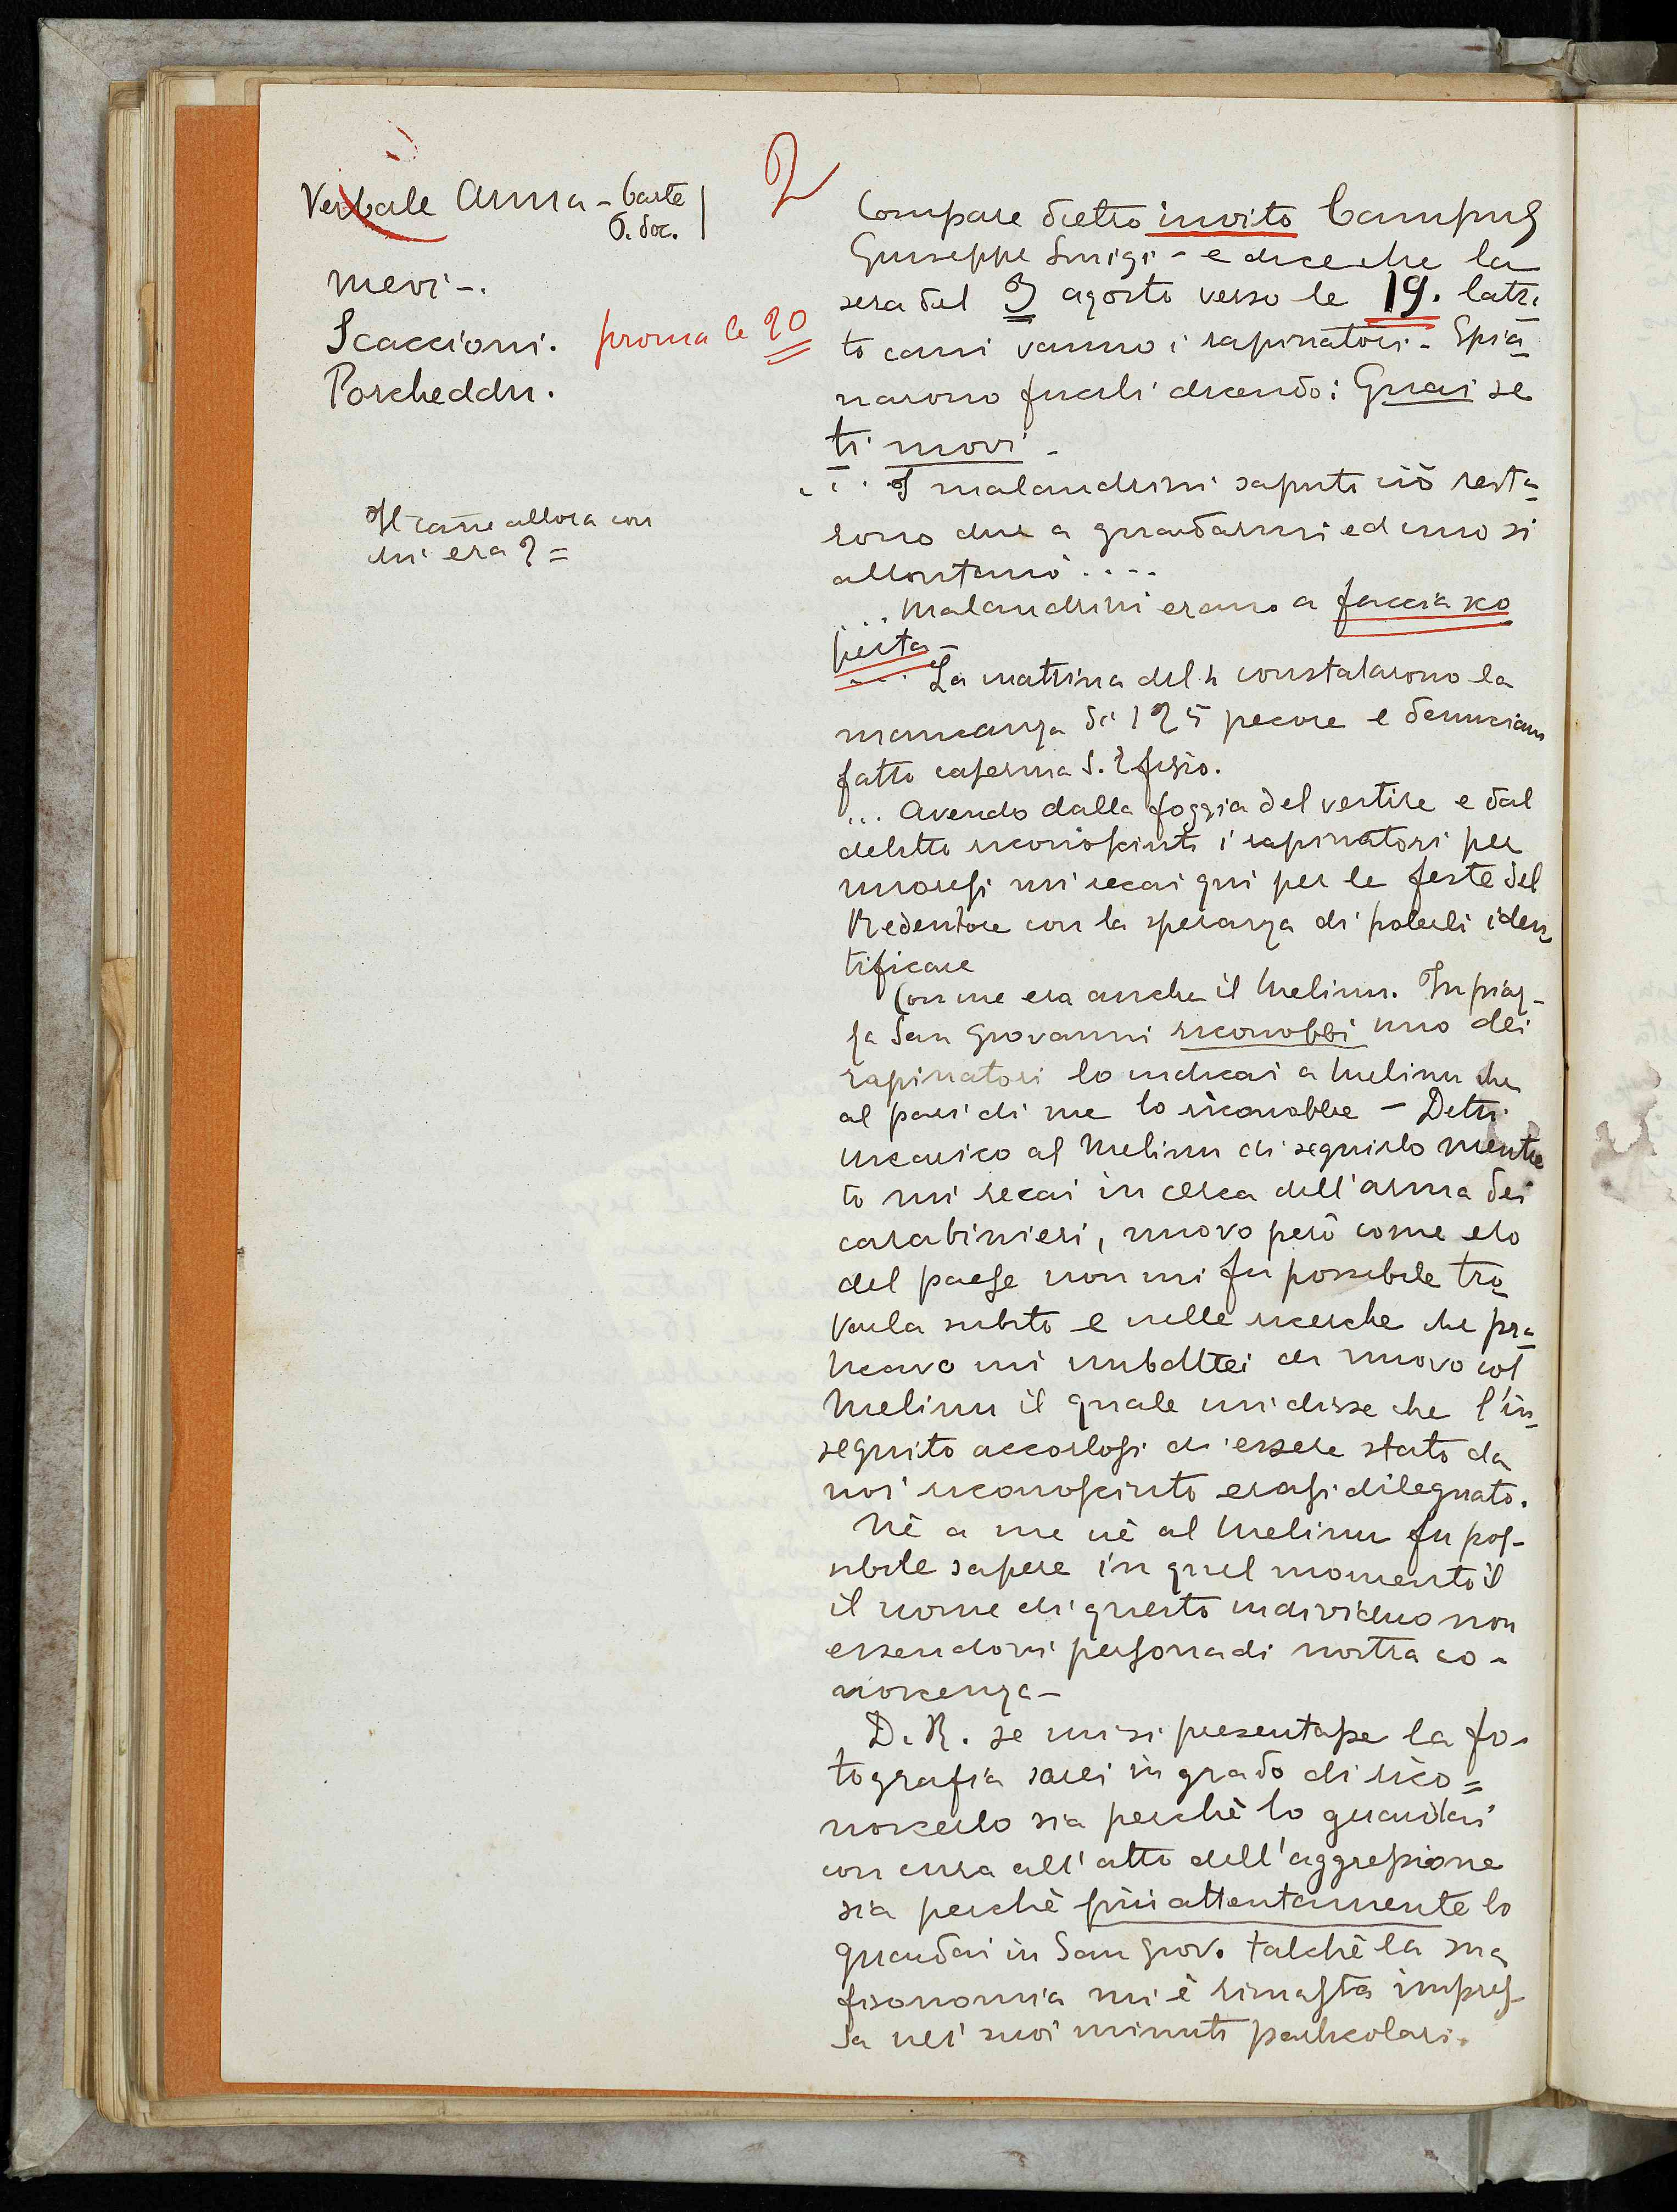 2
Verbale Arma - Carte
6. doc.
Mevi -.
Scaccioni. proma le 20
Porcheddu.
Il cane allora con
chi era? =
Compare dietro invito Campus
Giuseppe Luigi - e dice che la
sera del 3 agosto verso le 19. latra
to cani vanno i rapinatori - Spia
narono fucili dicendo: Guai se
ti movi -
... I malandrini saputi ciò resta
rono due a guardarmi ed uno si
allontanò ....
... Malandrini erano a faccia sco
perta -
... La mattina del 4 constatarono la
mancanza di 125 pecore e denunciano
fatto caserma S. Efisio.
... Avendo dalla foggia del vestire e dal
deletto riconosciuti i rapinatori per
nuoresi mi recai qui per le feste del
Redentore con la speranza di poterli iden
tificare
Con me era anche il Melinu. In piaz-
za San Giovanni riconobbi uno dei
rapinatori lo indicai a Melinu che
al pari di me lo riconobbe - Detti
incarico al Melinu di seguirlo mentre
io mi recai in cerca dell'arma dei
carabinieri, nuovo però come ero
del paese non mi fu possibile tro
varla subito e nelle ricerche che pra
ticavo mi imbattei di nuovo col
Melinu il quale mi disse che l'in
seguito accortosi di essere stato da
noi riconosciuto erasi dileguato.
Nè a me nè al Melinu fu pos-
sibile sapere in quel momento il
il nome di questo individuo non
essendovi persona di nostra co-
noscenza -
D. R. se mi si presentasse la fo-
tografia sarei in grado di rico=
noscerlo sia perchè lo guardai
con cura all'atto dell'aggressione
sia perchè più attentamente lo
guardai in San Giov. talchè la sua
fisonomia mi è rimasta impres-
sa nei suoi minuti particolari.